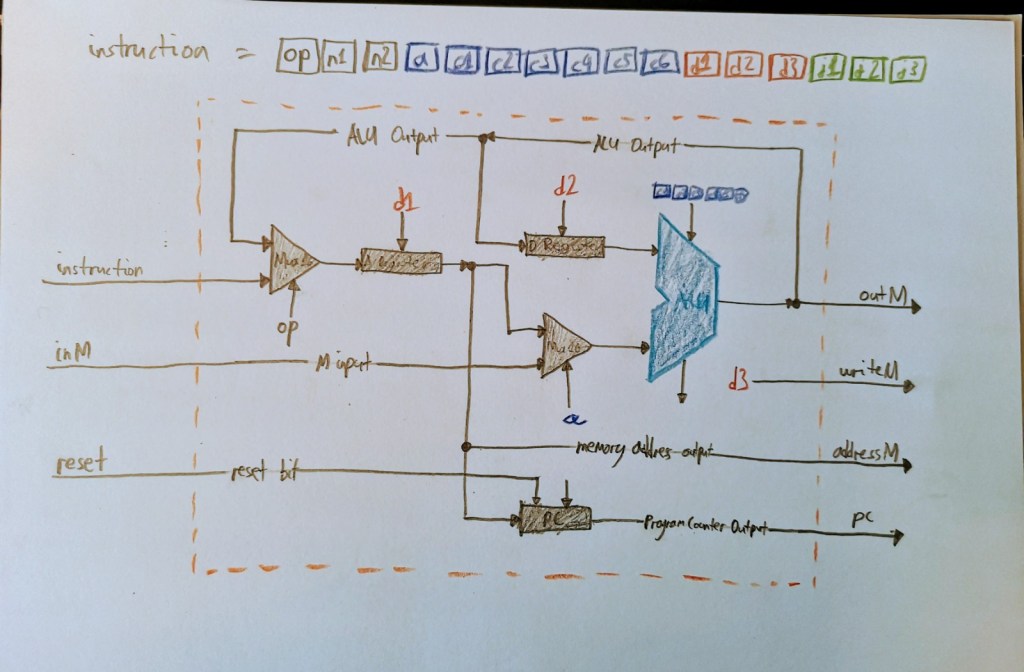 instruction = op n1 n2 a c1 c2 c3 c4 c5 c6 d1 d2 d3 j1 j2 j3
ALU Output
ALU Output
d1
d2
instruction
Mux16
A Register
D Register
ALU
outM
op
inM
M input
Mux16
a
d3
writeM
memory addres output
addressM
reset
reset bit
PC
Program Counter Output
pc